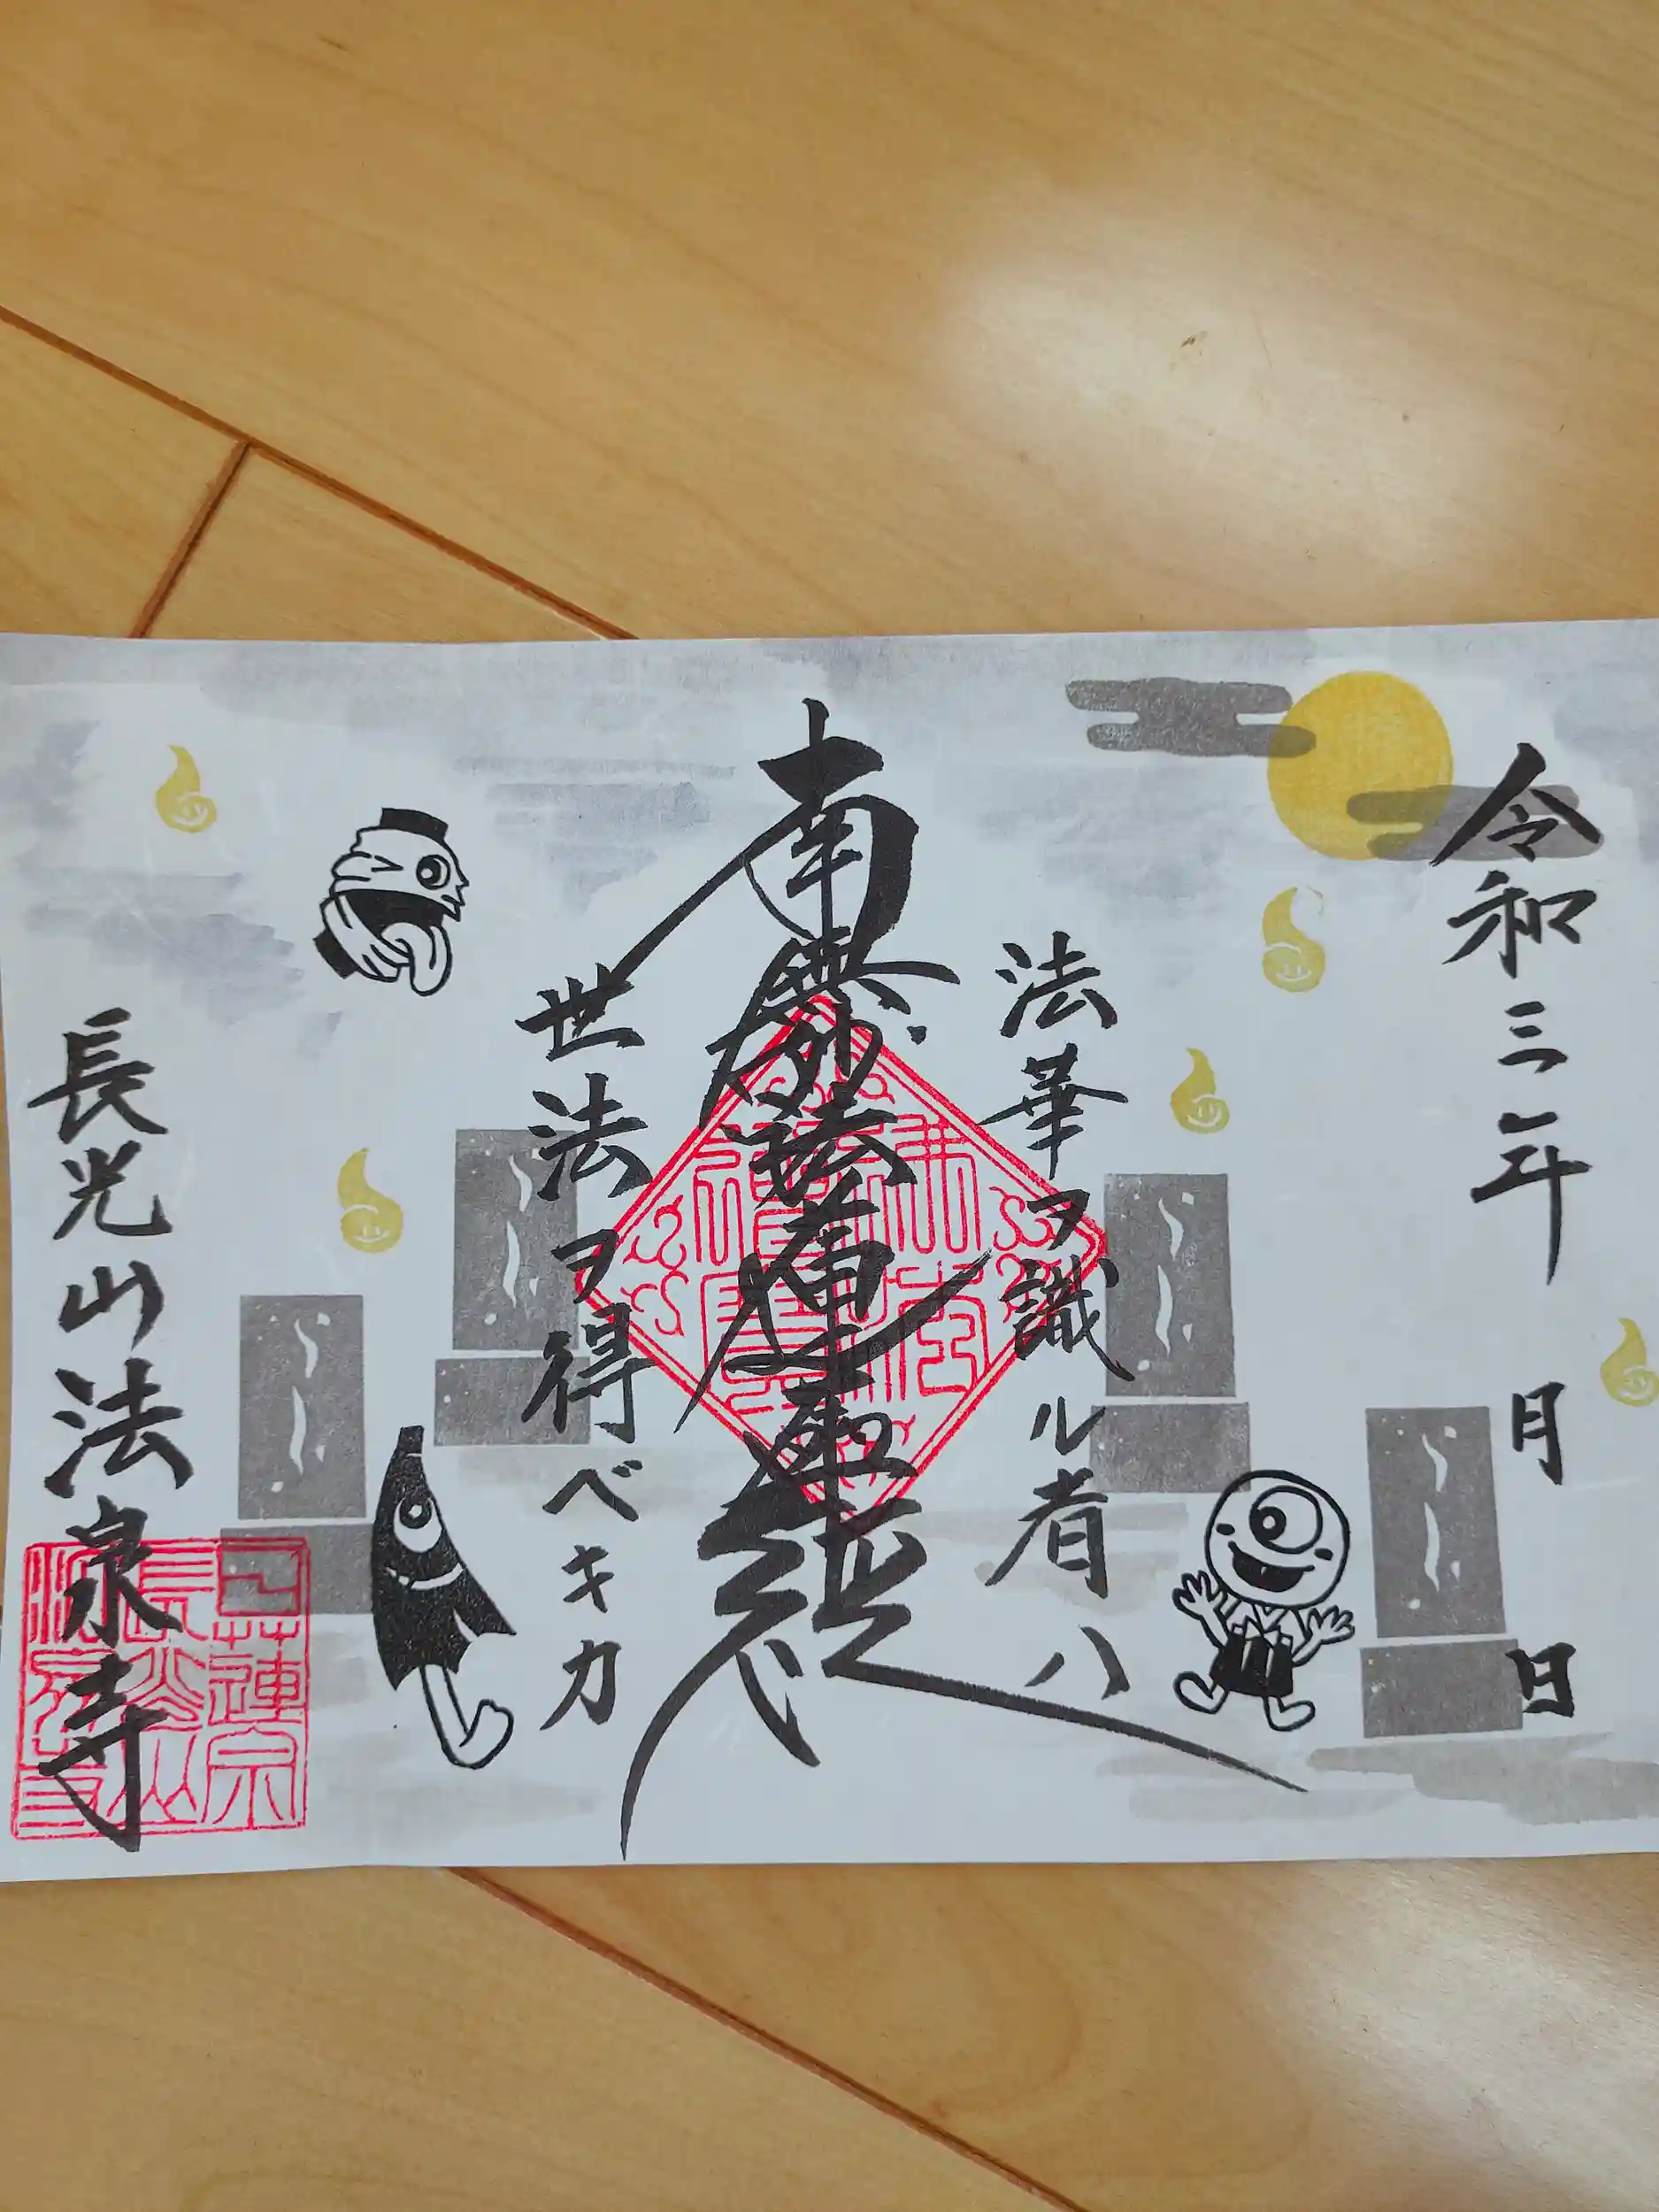 令和三年 月 日
法華ヲ識ル者ハ
南無妙法蓮華経
世法ヲ得ベキカ
長光山法泉寺
日蓮宗
長光山
法泉寺